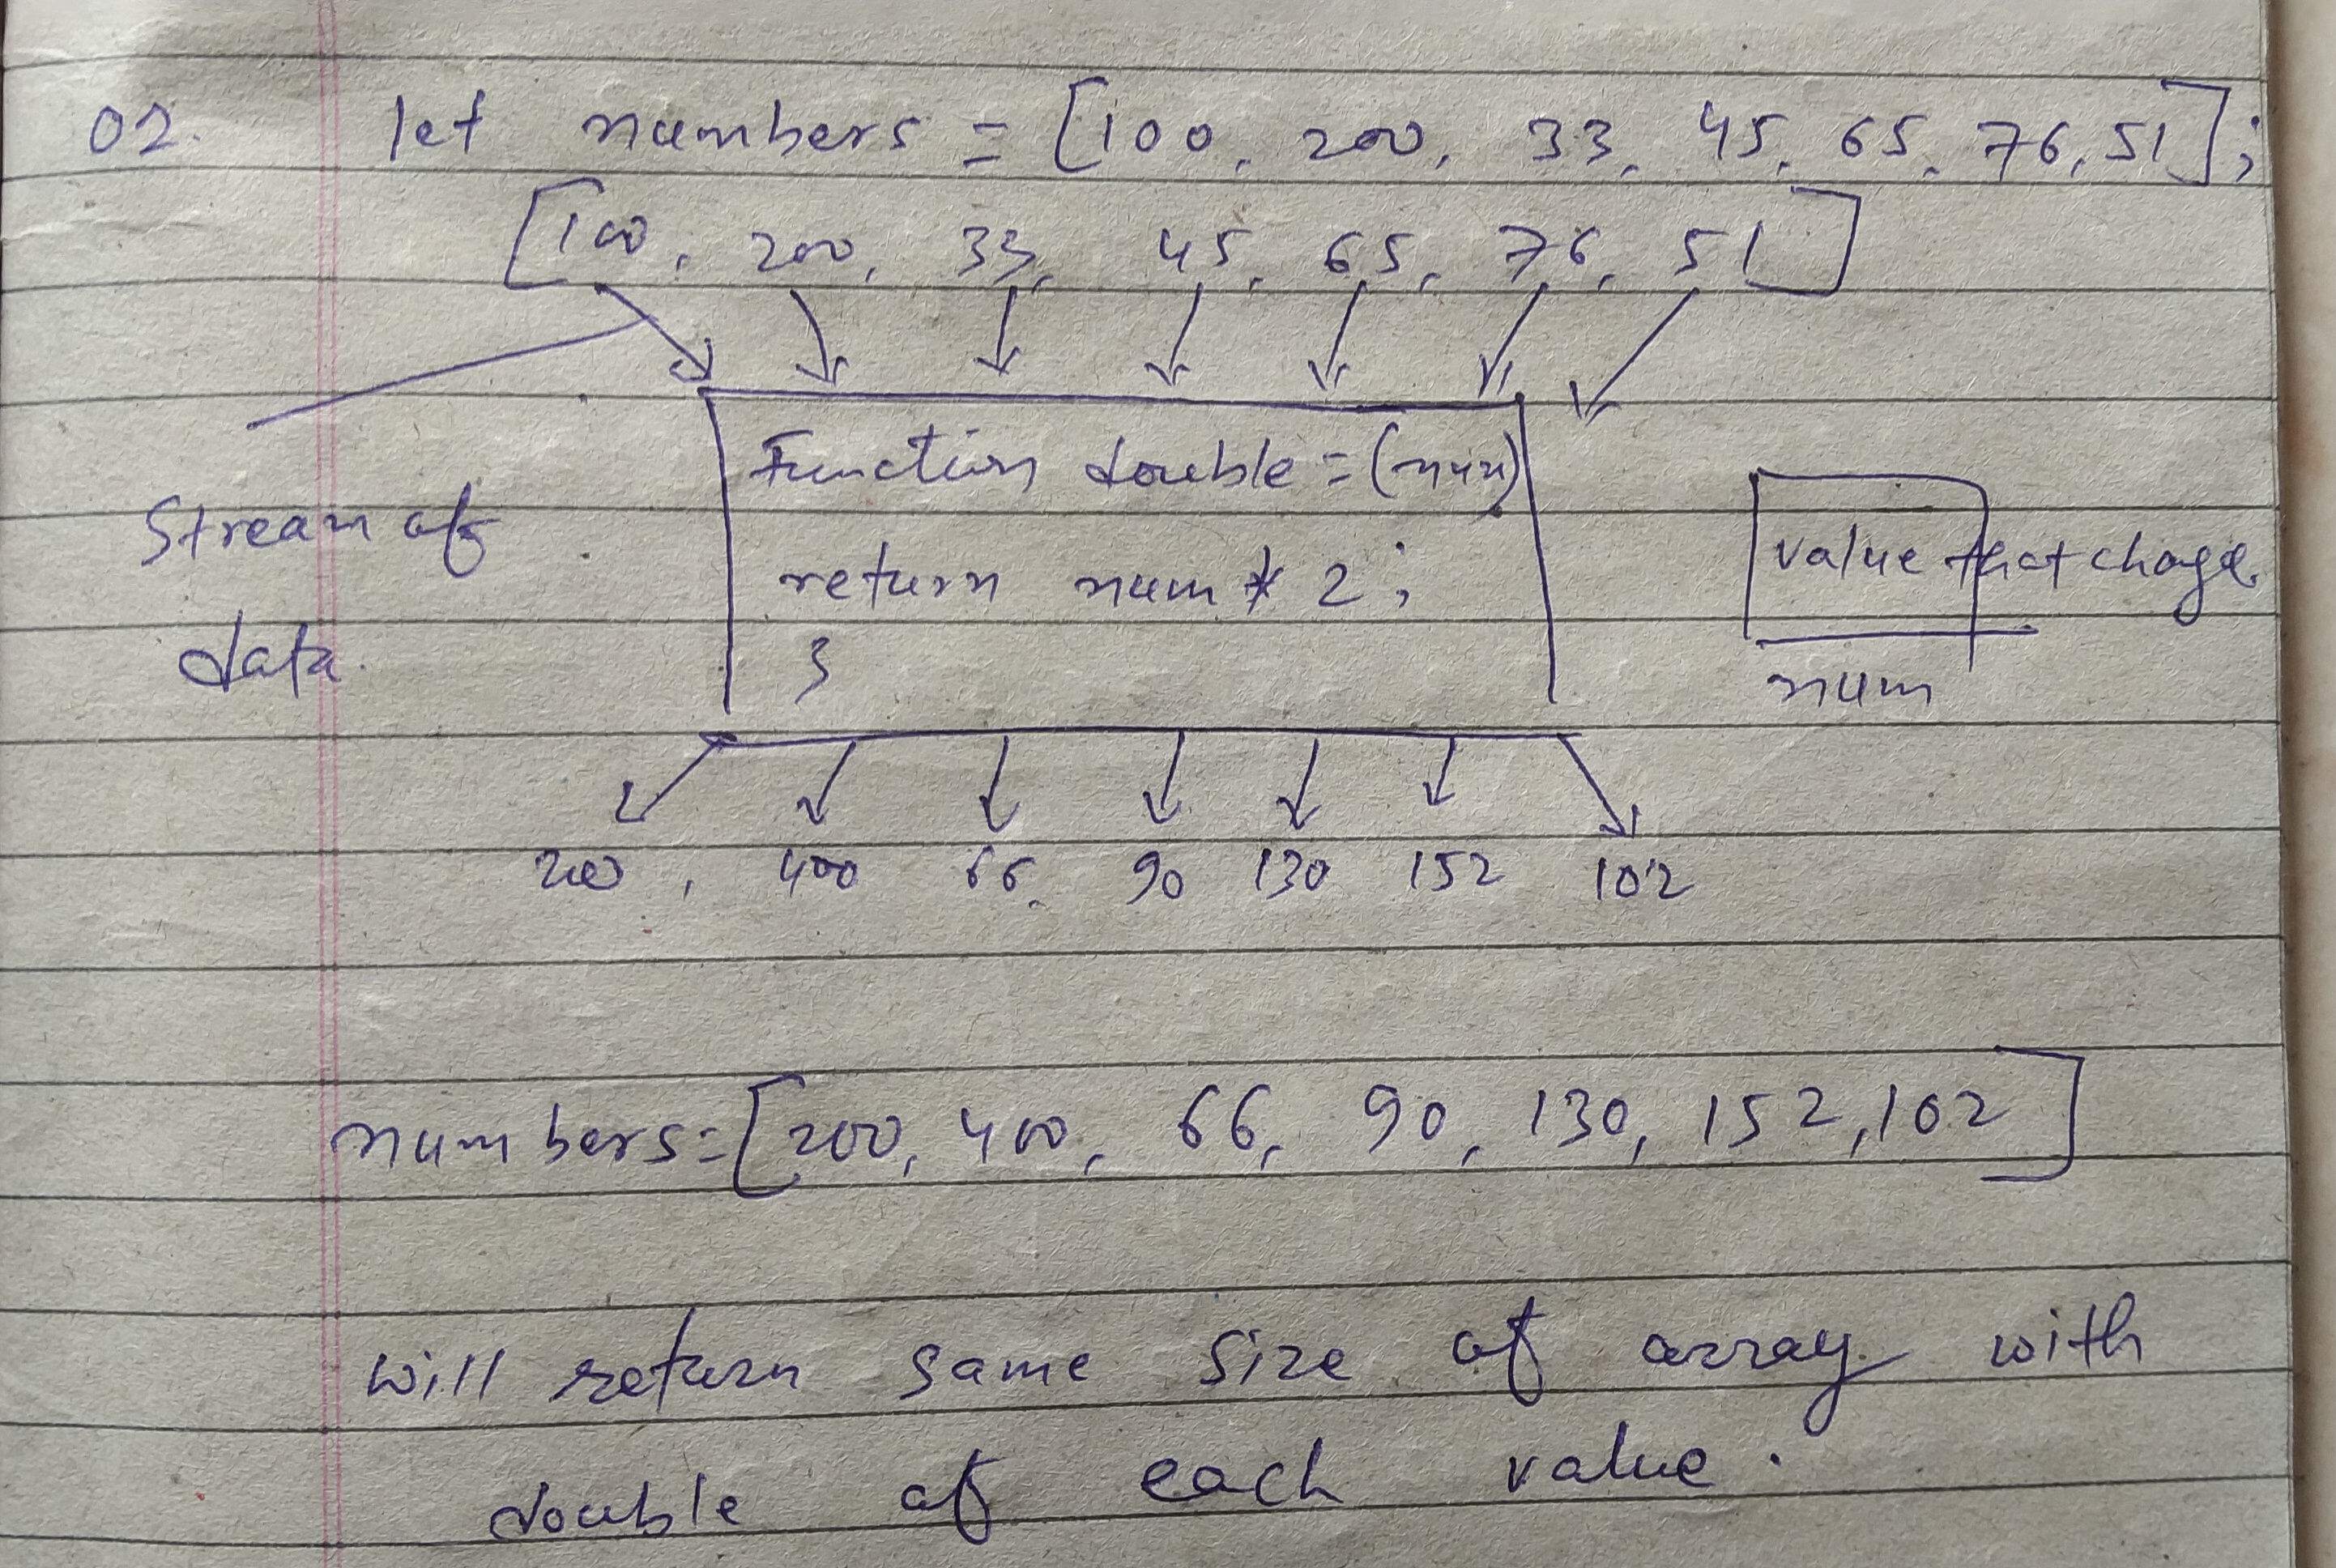 02. let numbers = [100, 200, 33, 45, 65, 76, 51];
[100, 200, 33, 45, 65, 76, 51]
Function double = (num)
return num * 2;
}
Stream of
data.
value that chage
num
200, 400 66, 90 130 152 102
numbers = [200, 400, 66, 90, 130, 152, 102]
will return same size of array with
double of each value.